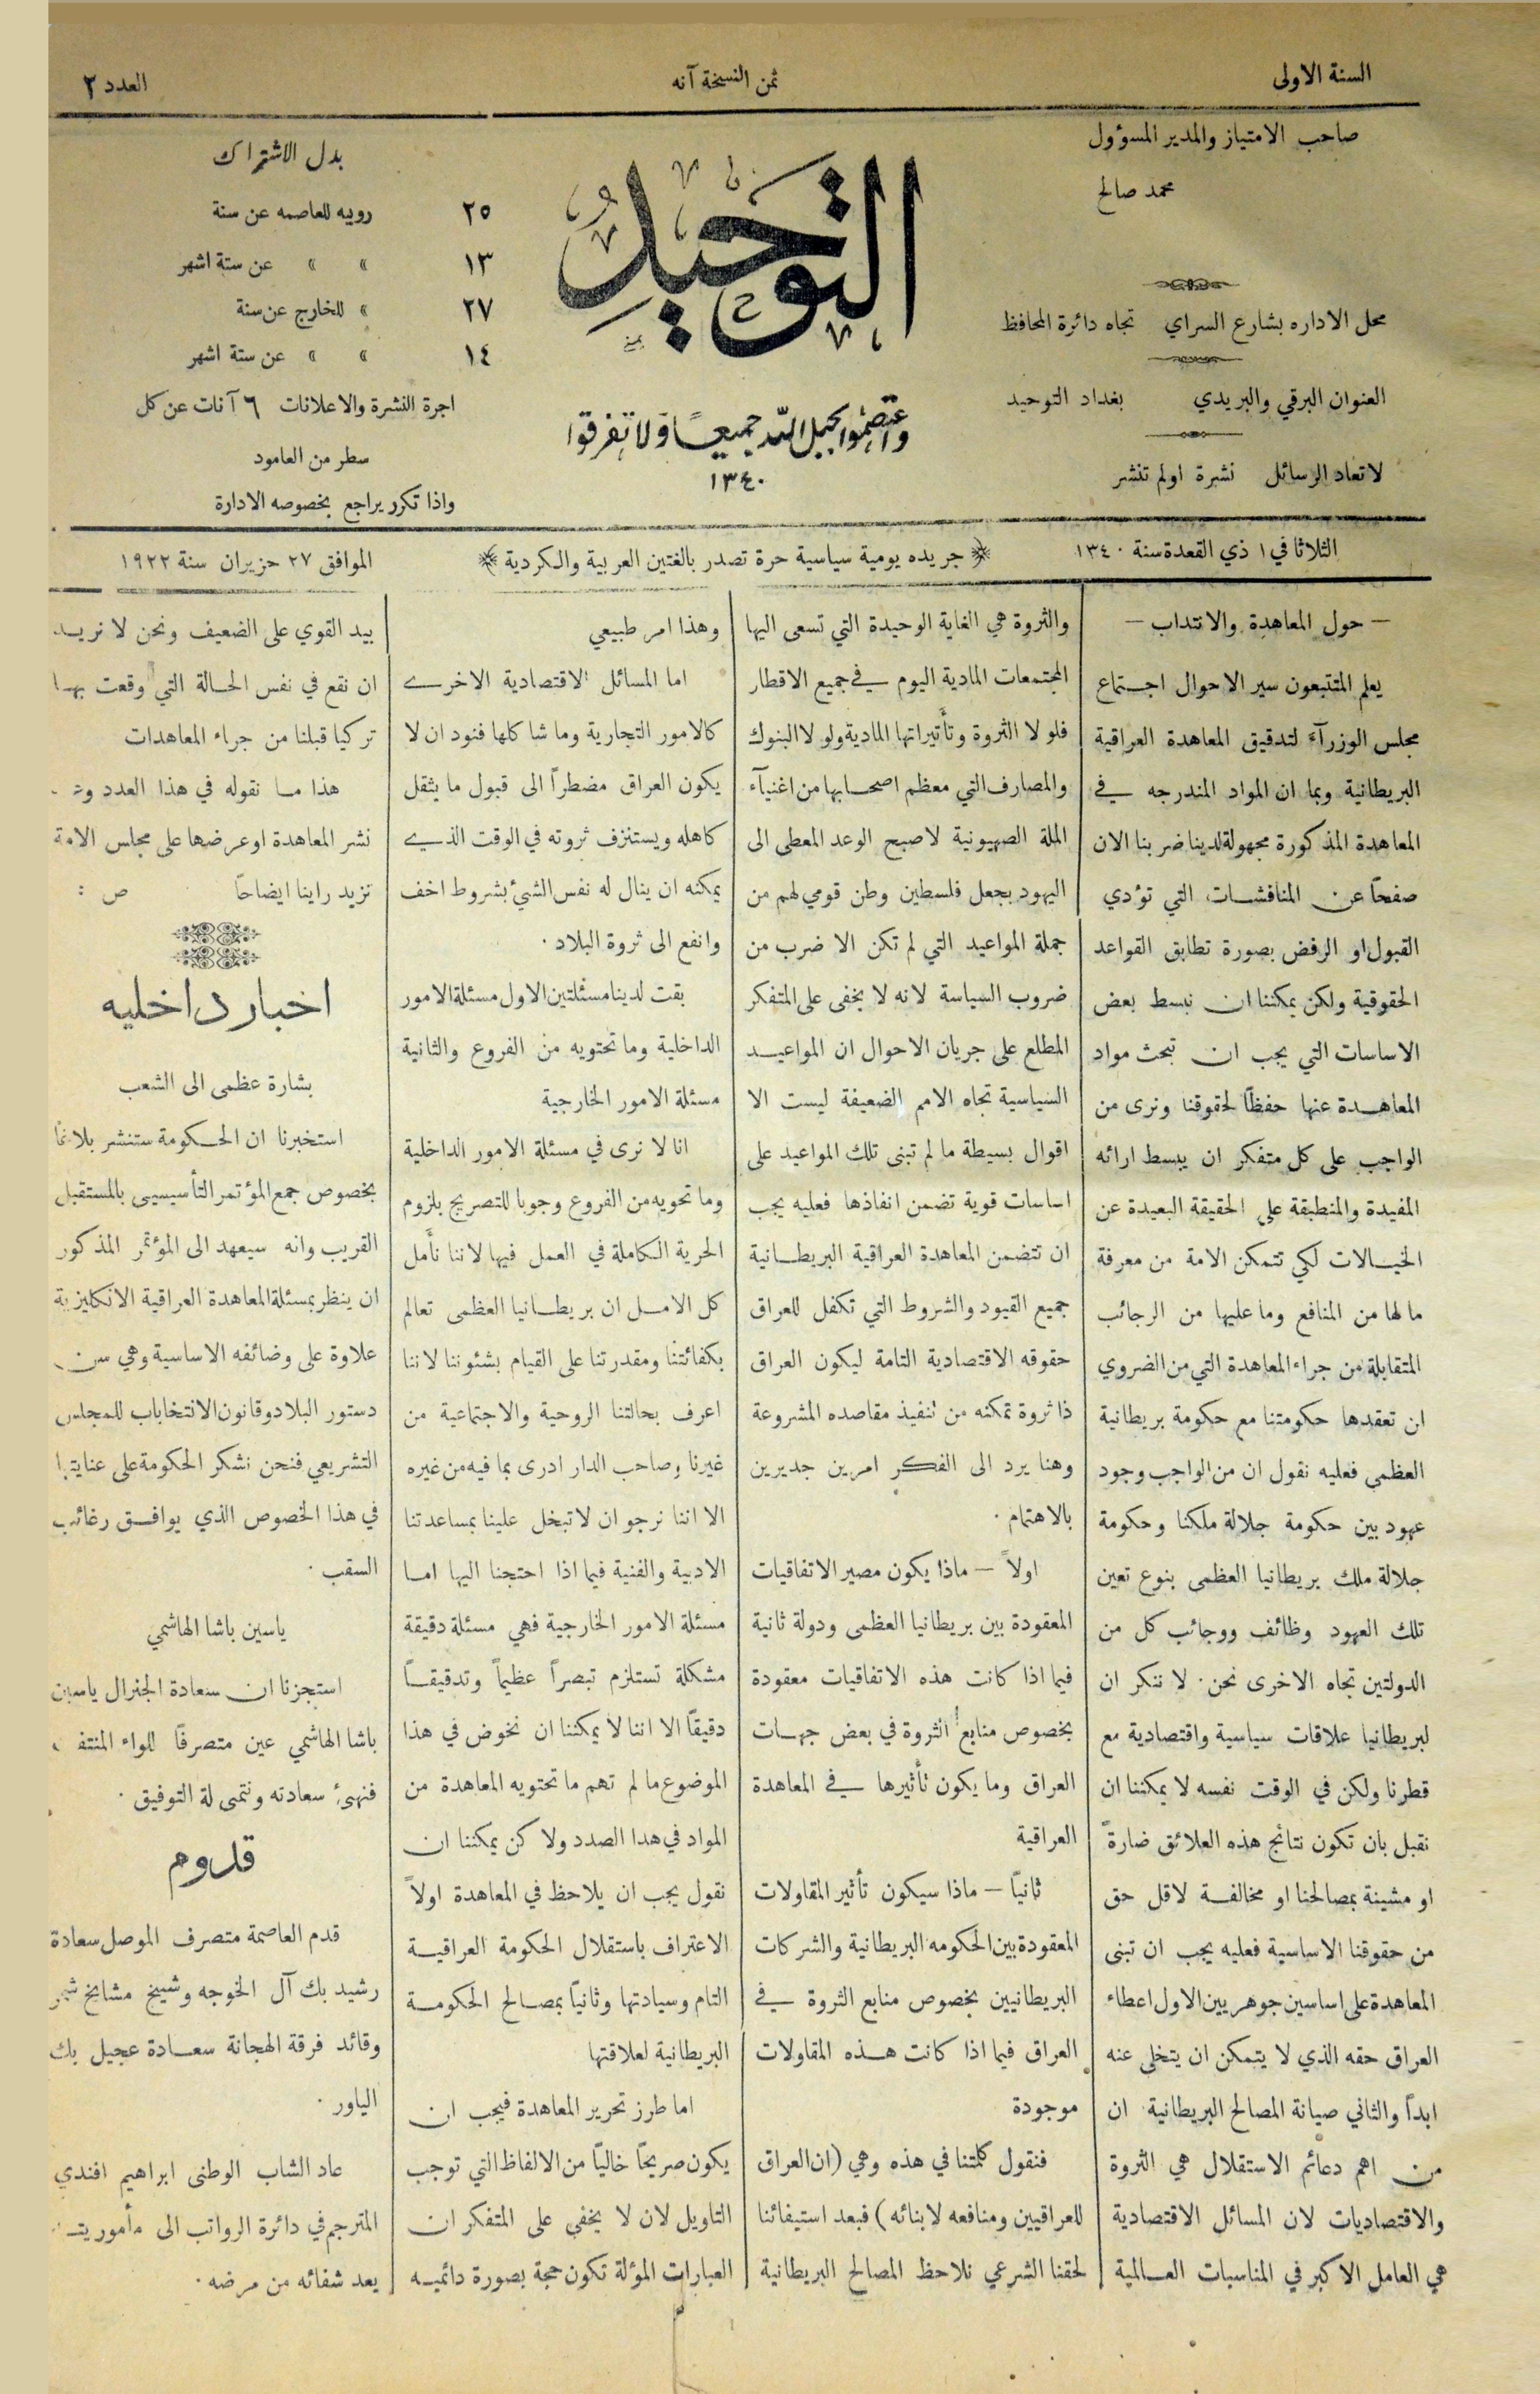 السنة الاولى
ثمن النسخة آنه
العدد ٢
صاحب الامتياز والمدير المسؤول
محمد صالح
محل الاداره بشارع السراي تجاه دائرة المحافظ
العنوان البرقي والبريدي بغداد التوحيد
لا تعاد الرسائل نشرة او لم تنشر
التوحيد
واعتصموا بحبل الله جميعاً ولا تفرقوا
١٣٤٠
بدل الاشتراك
٢٥ روبيه للعاصمه عن سنة
١٣ » » عن ستة اشهر
٢٧ » للخارج عن سنة
١٤ » » عن ستة اشهر
اجرة النشرة والاعلانات ٦ آنات عن كل
سطر من العامود
واذا تكرر يراجع بخصوصه الادارة
الثلاثا في ١ ذي القعدة سنة ١٣٤٠
جريده يومية سياسية حرة تصدر بالغتين العربية والكردية
الموافق ٢٧ حزيران سنة ١٩٢٢
— حول المعاهدة والانتداب —
يعلم المتتبعون سير الاحوال اجتماع
مجلس الوزرآء لتدقيق المعاهدة العراقية
البريطانية وبما ان المواد المندرجه في
المعاهدة المذكورة مجهولة لدينا ضربنا الان
صفحاً عن المناقشات التي تؤدي
القبول او الرفض بصورة تطابق القواعد
الحقوقية ولكن يمكننا ان نبسط بعض
الاساسات التي يجب ان تبحث مواد
المعاهدة عنها حفظاً لحقوقنا ونرى من
الواجب على كل متفكر ان يبسط ارائه
المفيدة والمنطبقة على الحقيقة البعيدة عن
الخيالات لكي تتمكن الامة من معرفة
ما لها من المنافع وما عليها من الرجائب
المتقابلة من جراء المعاهدة التي من الضروي
ان تعقدها حكومتنا مع حكومة بريطانية
العظمى فعليه نقول ان من الواجب وجود
عهود بين حكومة جلالة ملكنا وحكومة
جلالة ملك بريطانيا العظمى بنوع تعين
تلك العهود وظائف ووجائب كل من
الدولتين تجاه الاخرى نحن لا ننكر ان
لبريطانيا علاقات سياسية واقتصادية مع
قطرنا ولكن في الوقت نفسه لا يمكننا ان
نقبل بان تكون نتائج هذه العلائق ضارةً
او مشينة بمصالحنا او مخالفة لاقل حق
من حقوقنا الاساسية فعليه يجب ان تبنى
المعاهدة على اساسين جوهريين الاول اعطاء
العراق حقه الذي لا يتمكن ان يتخلى عنه
ابداً والثاني صيانة المصالح البريطانية ان
من اهم دعائم الاستقلال هي الثروة
والاقتصاديات لان المسائل الاقتصادية
هي العامل الاكبر في المناسبات العالمية
والثروة هي الغاية الوحيدة التي تسعى اليها
المجتمعات المادية اليوم في جميع الاقطار
فلو لا الثروة وتأثيراتها المادية ولو لا البنوك
والمصارف التي معظم اصحابها من اغنيآء
الملة الصهيونية لاصبح الوعد المعطى الى
اليهود بجعل فلسطين وطن قومي لهم من
جملة المواعيد التي لم تكن الا ضرب من
ضروب السياسة لانه لا يخفى على المتفكر
المطلع على جريان الاحوال ان المواعيد
السياسية تجاه الامم الضعيفة ليست الا
اقوال بسيطة ما لم تبنى تلك المواعيد على
اساسات قوية تضمن انفاذها فعليه يجب
ان تتضمن المعاهدة العراقية البريطانية
جميع القيود والشروط التي تكفل للعراق
حقوقه الاقتصادية التامة ليكون العراق
ذا ثروة تمكنه من تنفيذ مقاصده المشروعة
وهنا يرد الى الفكر امرين جديرين
بالاهتمام .
اولاً — ماذا يكون مصير الاتفاقيات
المعقودة بين بريطانيا العظمى ودولة ثانية
فيما اذا كانت هذه الاتفاقيات معقودة
بخصوص منابع الثروة في بعض جهات
العراق وما يكون تأثيرها في المعاهدة
العراقية
ثانياً — ماذا سيكون تأثير المقاولات
المعقودة بين الحكومه البريطانية والشركات
البريطانيين بخصوص منابع الثروة في
العراق فيما اذا كانت هذه المقاولات
موجودة
فنقول كلمتنا في هذه وهي (ان العراق
للعراقيين ومنافعه لابنائه) فبعد استيفائنا
لحقنا الشرعي نلاحظ المصالح البريطانية
وهذا امر طبيعي
اما المسائل الاقتصادية الاخرى
كالامور التجارية وما شاكلها فنود ان لا
يكون العراق مضطراً الى قبول ما يثقل
كاهله ويستنزف ثروته في الوقت الذي
يمكنه ان ينال له نفس الشيء بشروط اخف
وانفع الى ثروة البلاد .
بقت لدينا مسئلتين الاول مسئلة الامور
الداخلية وما تحتويه من الفروع والثانية
مسئلة الامور الخارجية
انا لا نرى في مسئلة الامور الداخلية
وما تحويه من الفروع وجوبا للتصريح بلزوم
الحرية الكاملة في العمل فيها لاننا نأمل
كل الامل ان بريطانيا العظمى تعالم
بكفائتنا ومقدرتنا على القيام بشئوننا لاننا
اعرف بحالتنا الروحية والاجتماعية من
غيرنا وصاحب الدار ادرى بما فيه من غيره
الا اننا نرجو ان لا تبخل علينا بمساعدتنا
الادبية والفنية فيما اذا احتجنا اليها اما
مسئلة الامور الخارجية فهي مسئلة دقيقة
مشكلة تستلزم تبصراً عظيماً وتدقيقاً
دقيقاً الا اننا لا يمكننا ان نخوض في هذا
الموضوع ما لم تهم ما تحتويه المعاهدة من
المواد في هدا الصدد ولا كن يمكننا ان
نقول يجب ان يلاحظ في المعاهدة اولاً
الاعتراف باستقلال الحكومة العراقية
التام وسيادتها وثانياً بمصالح الحكومة
البريطانية لعلاقتها
اما طرز تحرير المعاهدة فيجب ان
يكون صريحاً خالياً من الالفاظ التي توجب
التاويل لان لا يخفى على المتفكر ان
العبارات المؤلة تكون حجة بصورة دائميه
بيد القوي على الضعيف ونحن لا نريد
ان نقع في نفس الحالة التي وقعت بها
تركيا قبلنا من جراء المعاهدات
هذا ما نقوله في هذا العدد
نشر المعاهدة او عرضها على مجلس الامة
نزيد راينا ايضاحاً ص :
اخبار داخليه
بشارة عظمى الى الشعب
استخبرنا ان الحكومة ستنشر بلاغاً
بخصوص جمع المؤتمر التأسيسي بالمستقبل
القريب وانه سيعهد الى المؤتمر المذكور
ان ينظر بمسئلة المعاهدة العراقية الانكليزية
علاوة على وضائفه الاساسية وهي سن
دستور البلاد وقانون الانتخاباب للمجلس
التشريعي فنحن نشكر الحكومة على عنايتها
في هذا الخصوص الذي يوافق رغائب
السقب .
ياسين باشا الهاشمي
استجزنا ان سعادة الجنرال ياسين
باشا الهاشمي عين متصرفاً للواء المنتفك
فنهئ سعادته ونتمى لة التوفيق .
قدوم
قدم العاصمة متصرف الموصل سعادة
رشيد بك آل الخوجه وشيخ مشايخ شمر
وقائد فرقة الهجانة سعادة عجيل بك
الياور .
عاد الشاب الوطنى ابراهيم افندي
المترجم في دائرة الرواتب الى
يعد شفائه من مرضه .